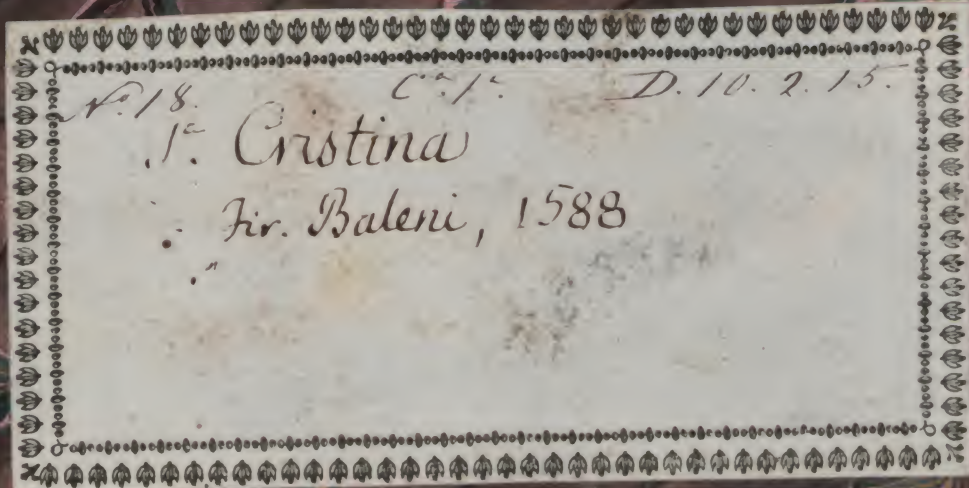 No. 18. Ca. 1a. D. 10. 2. 15.
Sa. Cristina
Fir. Baleni, 1588